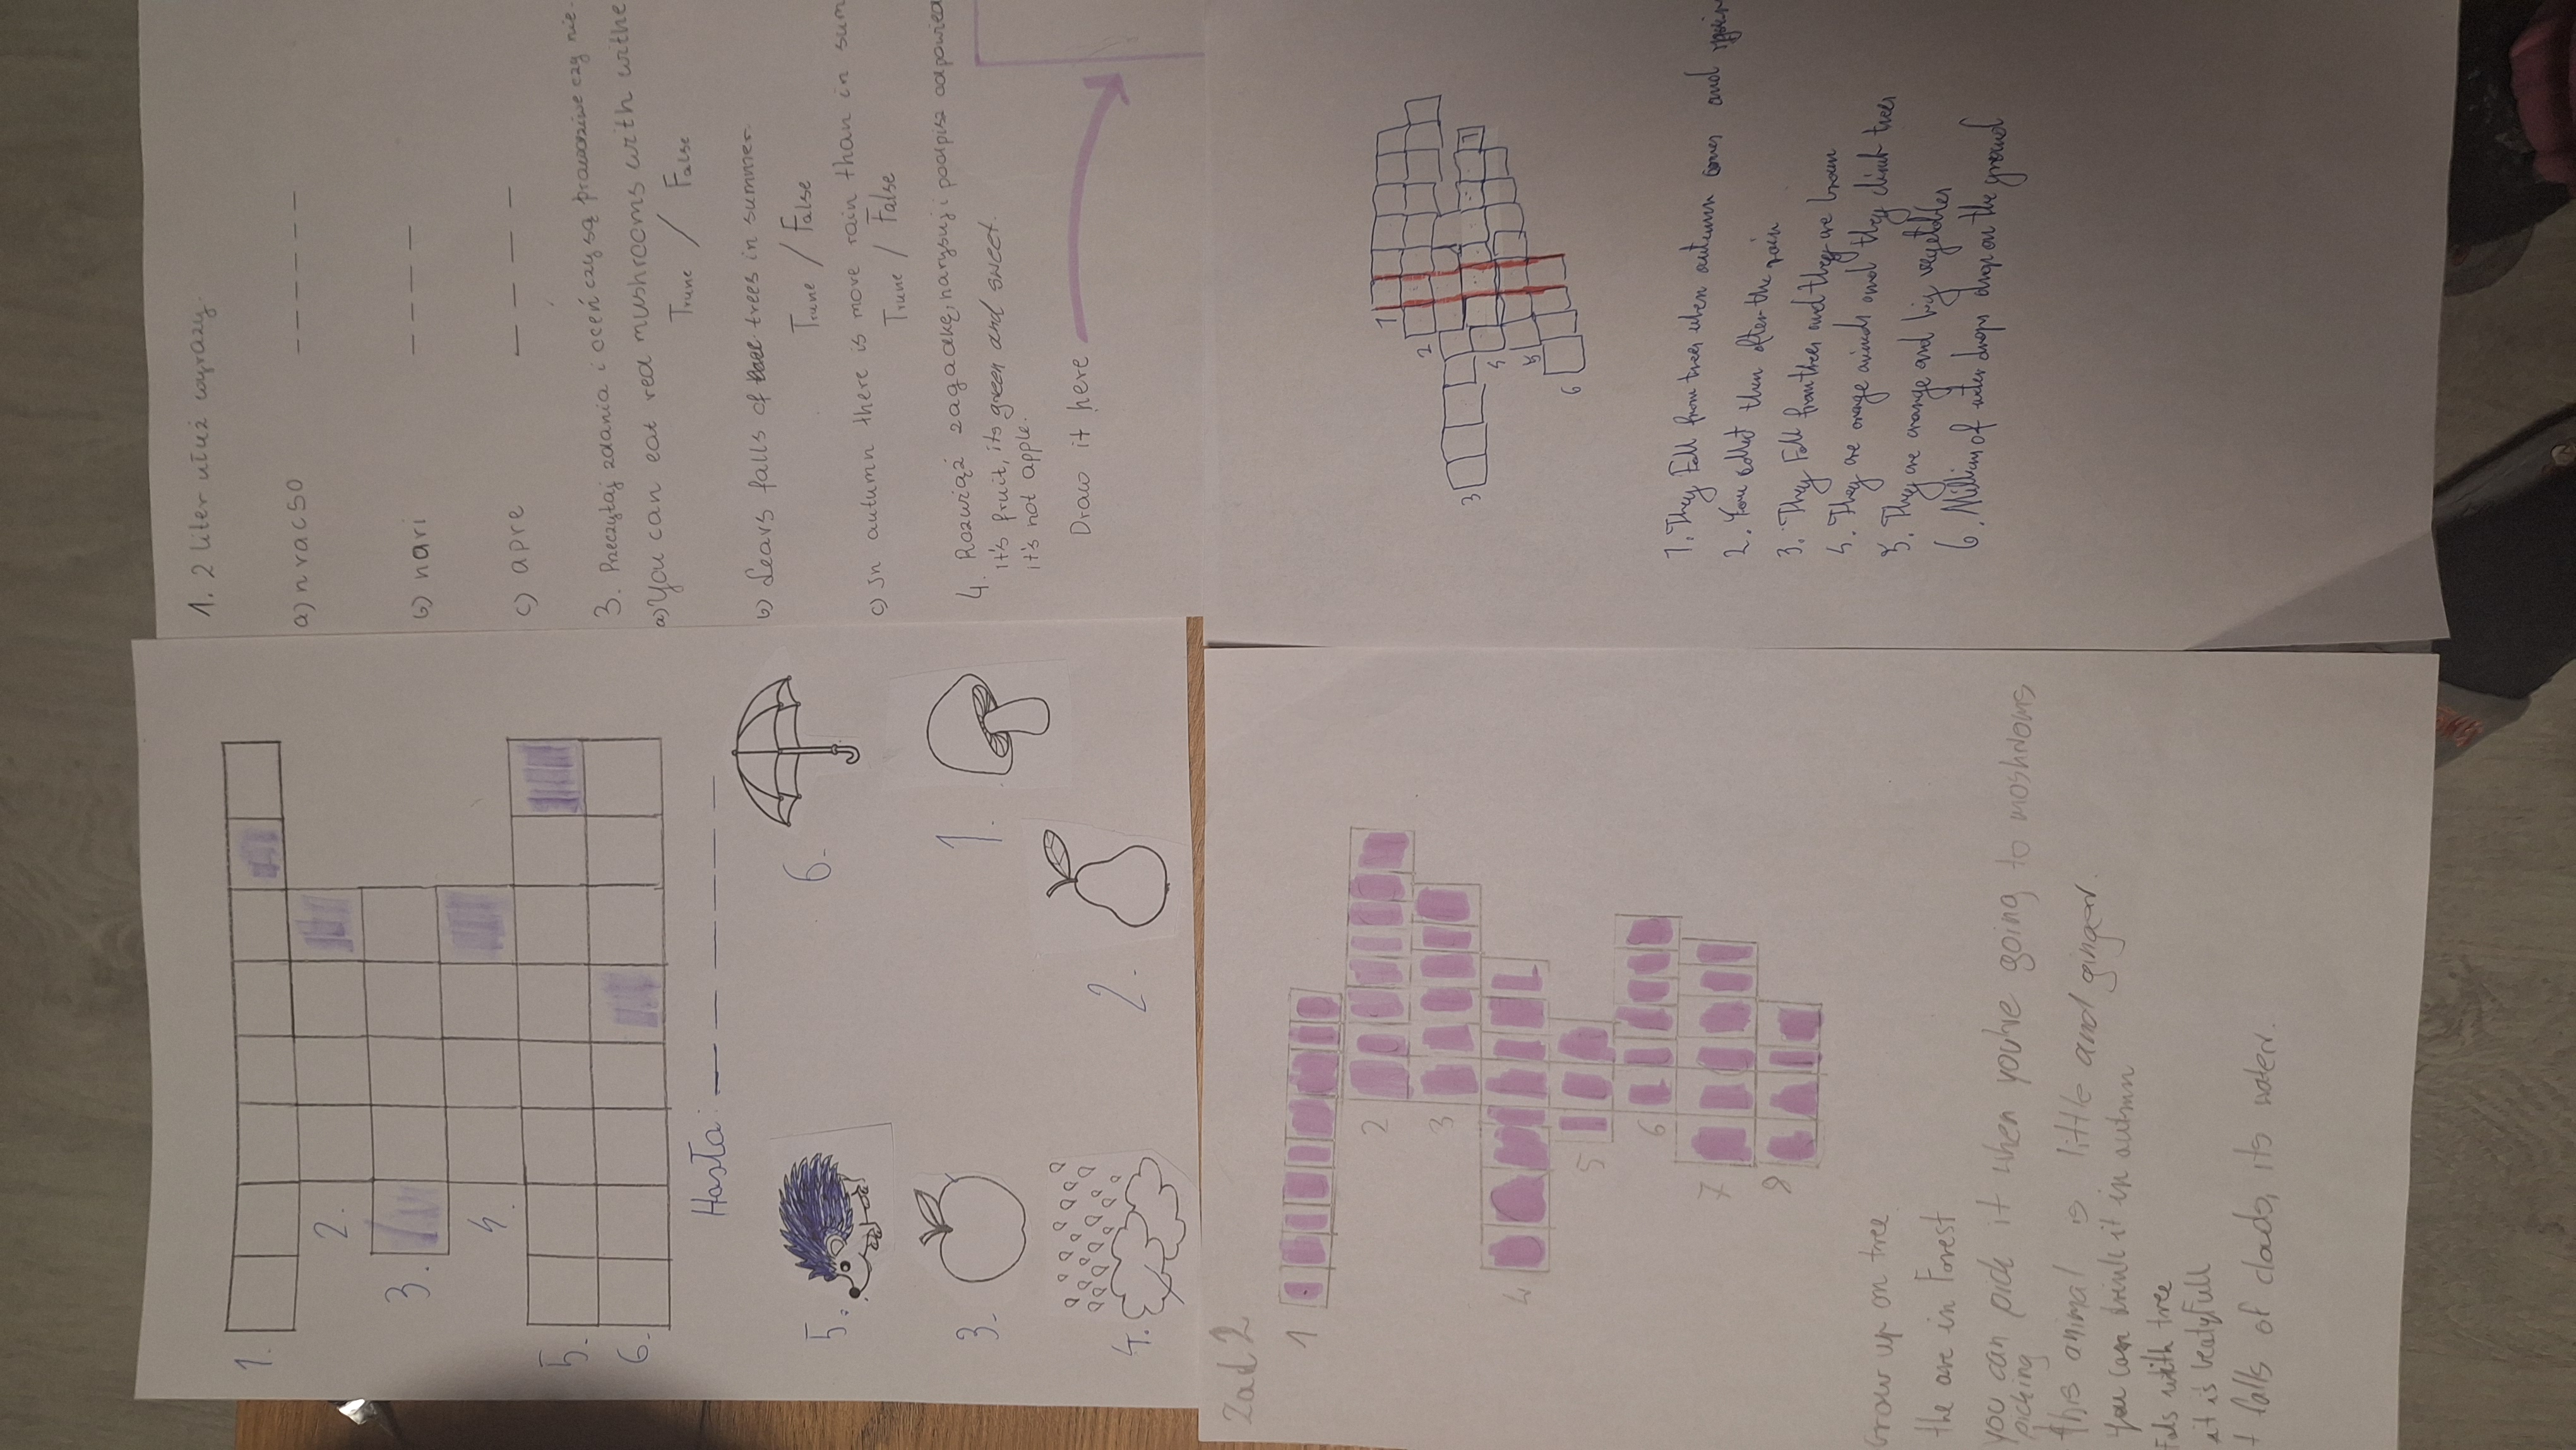 1. 2 liter ułuż wyrazy.
a) nracso _ _ _ _ _ _
b) nari _ _ _ _
c) apre _ _ _ _
3. Przeczytaj zdania i oceń czy są prawdziwe czy nie.
a) You can eat red mushrooms with withe
Trune / False
b) Leavs falls of trees in summer.
Trune / False
c) In autumn there is move rain than in sum
Trune / False
4. Rozwiąż zagadkę, narysuj i podpisz odpowied
it's fruit, its green and sweet.
it's not apple.
Draw it here
1.
2.
3.
4.
5.
6.
Hasła: _ _ _ _ _ _
5.
6.
3.
1.
4.
2.
1
2
3
4
5
6
1. They fall from trees when autumn comes and
2. You collect them after the rain
3. They fall from trees and they are brown
4. They are orange animals and they climb trees
5. They are orange and big vegetables
6. Million of water drops drop on the ground
Zad 2
1
2
3
4
5
6
7
8
Grow up on tree
the are in Forest
you can pick it when you've going to moshrooms
picking
this animal is little and ginger.
you can drink it in autmn
Fals with tree
it is beutyfull
t falls of clouds, its water.